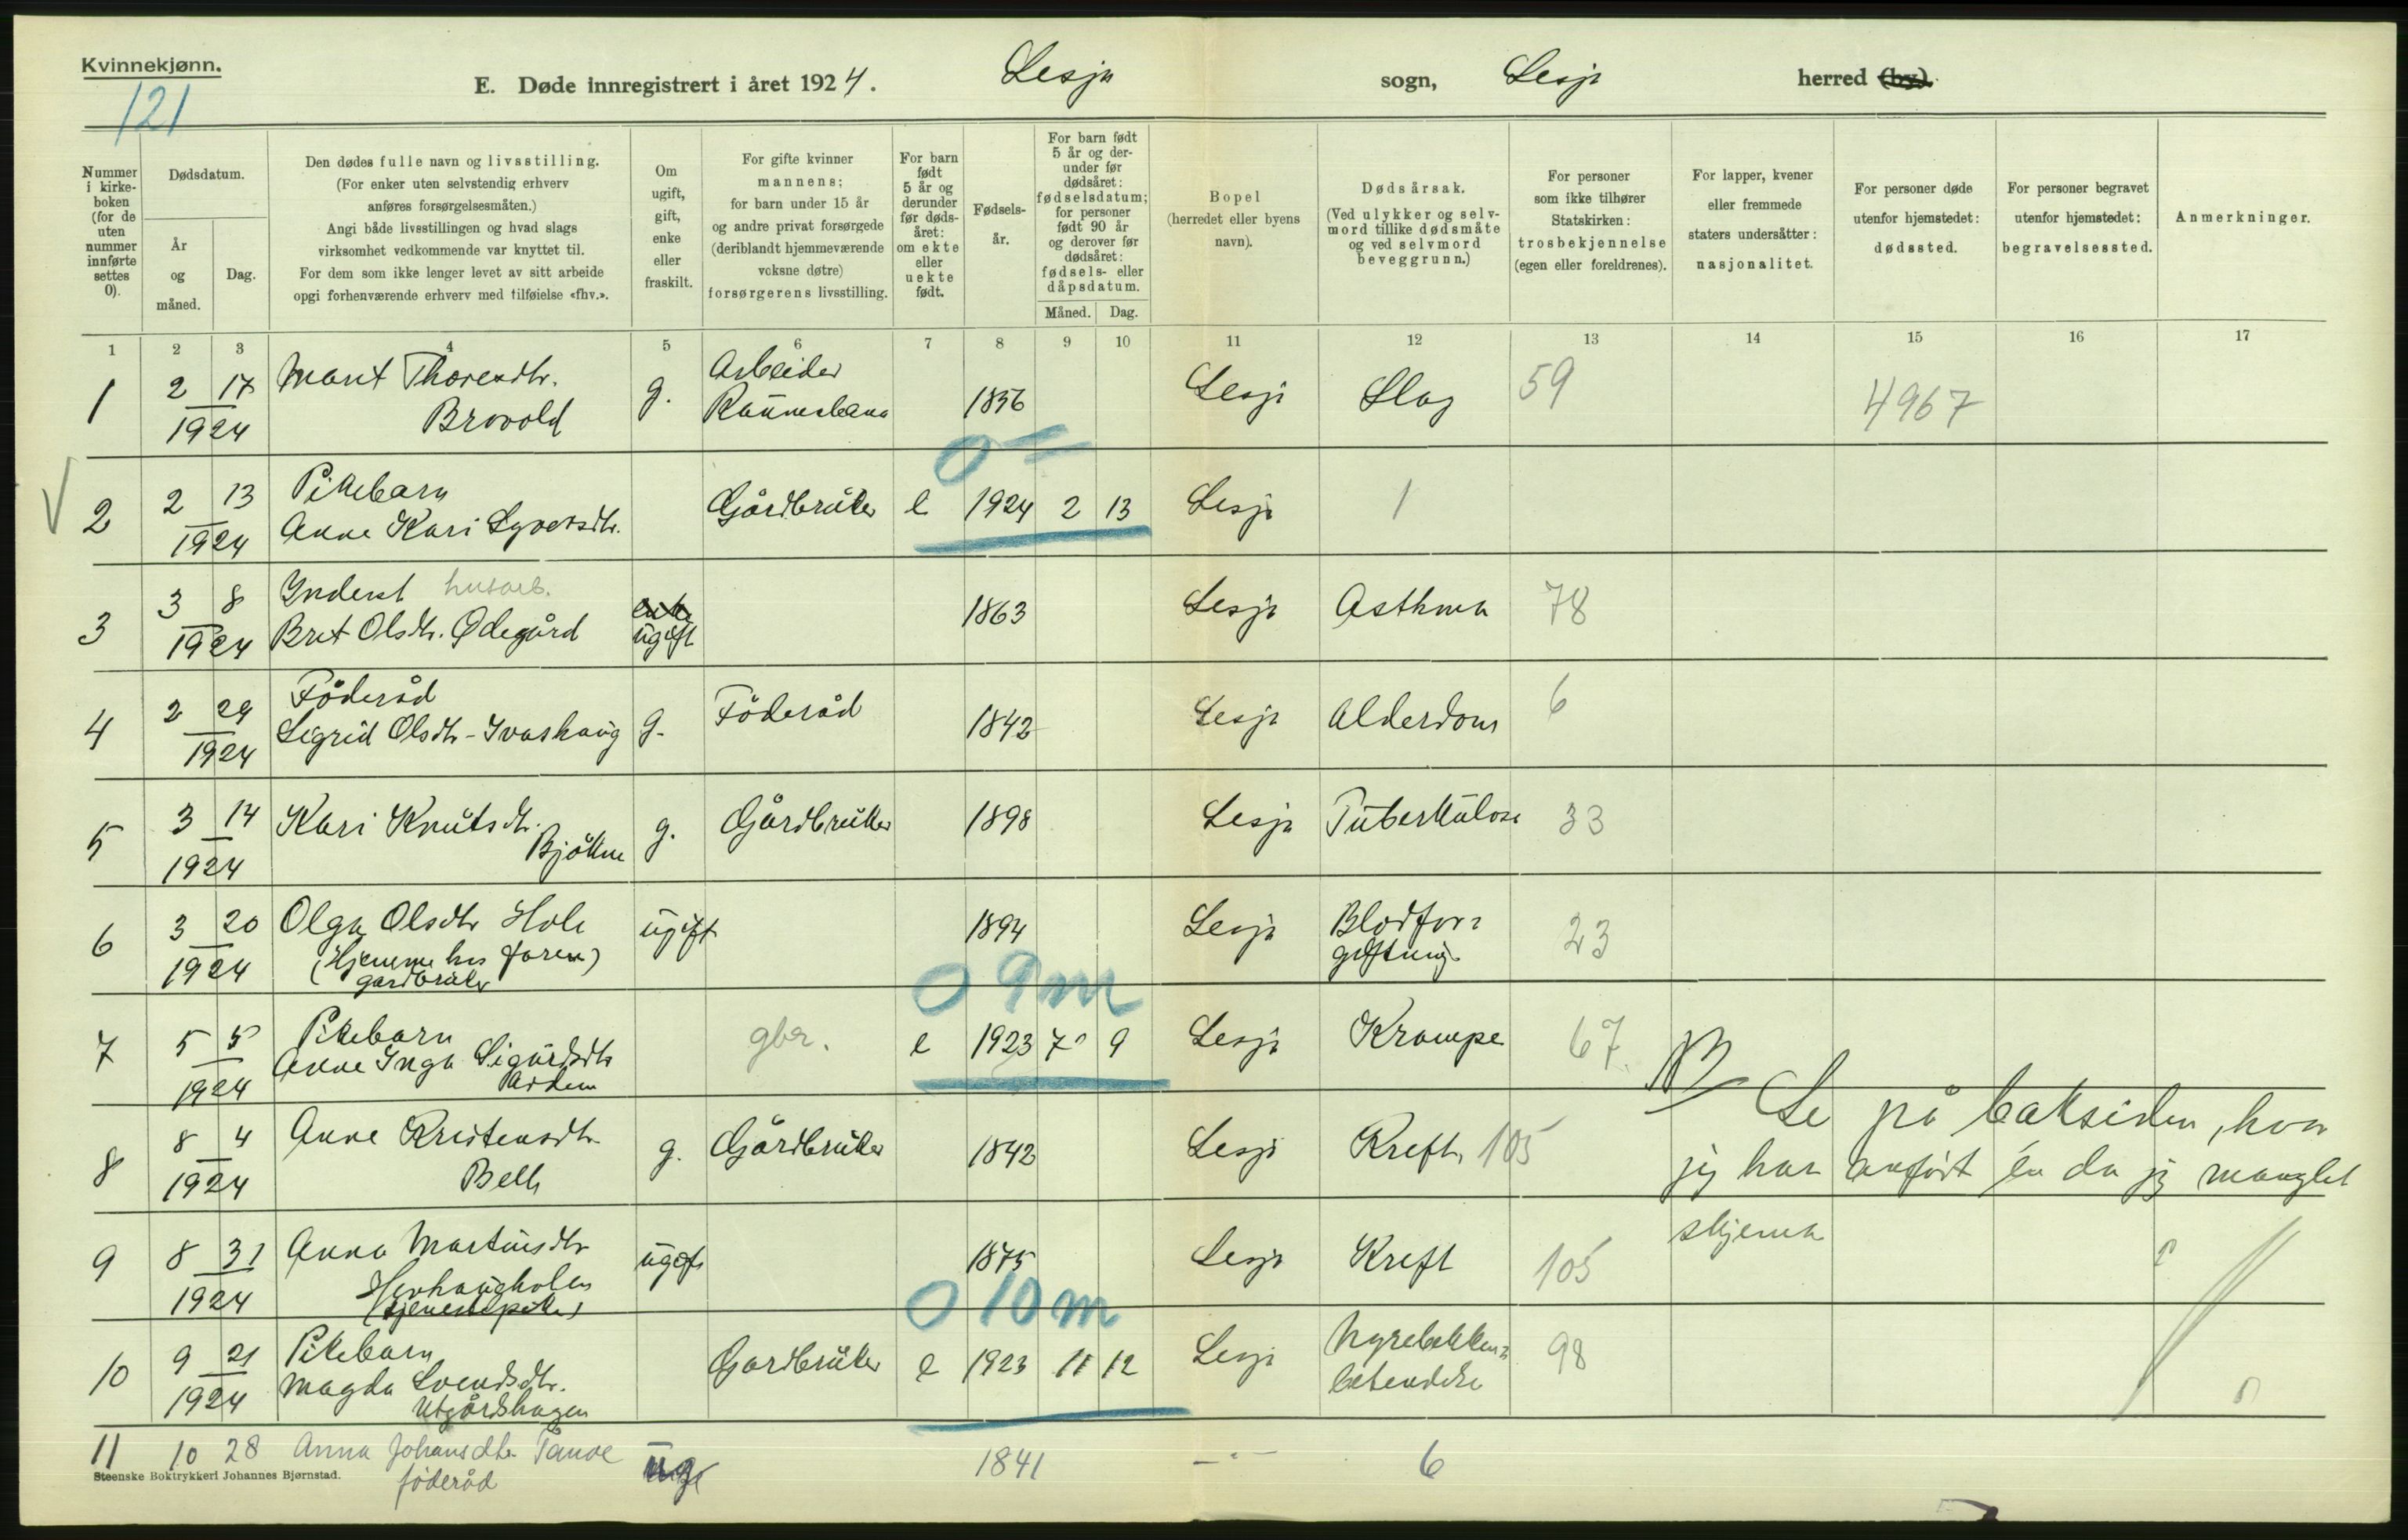 Kvinnekjønn.
121
E. Døde innregistrert i året 1924. Lesja sogn, Lesja herred (by).
Nummer i kirkeboken (for de uten nummer innførte settes 0).
Dødsdatum.
År og måned.
Dag.
Den dødes fulle navn og livsstilling.
(For enker uten selvstendig erhverv
anføres forsørgelsesmåten.)
Angi både livsstillingen og hvad slags
virksomhet vedkommende var knyttet til.
For dem som ikke lenger levet av sitt arbeide
opgi forhenværende erhverv med tilføielse «fhv.».
Om ugift, gift, enke eller fraskilt.
For gifte kvinner
mannens;
for barn under 15 år
og andre privat forsørgede
(deriblandt hjemmeværende
voksne døtre)
forsørgerens livsstilling.
For barn født 5 år og derunder før dødsåret: om ekte eller uekte født.
Fødselsår.
For barn født 5 år og derunder før dødsåret: fødselsdatum; for personer født 90 år og derover før dødsåret: fødsels- eller dåpsdatum.
Måned. Dag.
Bopel
(herredet eller byens
navn).
Dødsårsak.
(Ved ulykker og selvmord tillike dødsmåte og ved selvmord beveggrunn.)
For personer
som ikke tilhører
Statskirken:
trosbekjennelse
(egen eller foreldrenes).
For lapper, kvener
eller fremmede
staters undersåtter:
nasjonalitet.
For personer døde
utenfor hjemstedet:
dødssted.
For personer begravet
utenfor hjemstedet:
begravelsessted.
Anmerkninger.
1 2 3 4 5 6 7 8 9 10 11 12 13 14 15 16 17
1 2 17 Marit Thoresdtr. g. Arbeider 1856 Lesja Slag 59 4967
1924 Brovold
0
2 2 13 Pikebarn Gårdbruker e 1924 2 13 Lesja 1
1924 Anne Kari Syversdtr.
3 3 8 Inderst husarb. enke 1863 Lesja Asthma 78
1924 Brit Olsdtr. Ødegård ugift
4 2 29 Föderåd g. Föderåd 1842 Lesja Alderdom 6
1924 Sigrid Olsdtr - Ivashaug
5 3 14 Kari Knutsdtr. g. Gårdbruker 1898 Lesja Tuberkulose 33
1924 Bjökne
6 3 20 Olga Olsdtr Hole ugift 1894 Lesja Blodfor= 23
1924 (Hjemme hos faren) giftning.
gardbruker
0 9 m
7 5 5 Pikebarn gbr. e 1923 7 9 Lesja Krampe 67.
1924 Anne Inga Sigurdsdtr
8 8 4 Anne Kristensdtr. g. Gårdbruker 1842 Lesja Kreft 105
1924 Belle
NB Se på baksiden, hvor
jeg har anført én da jeg manglet
skjema
9 8 31 Anna Martinsdtr ugift 1875 Lesja Kreft 105
1924
(tjenestepike)
0 10 m
10 9 21 Pikebarn Gardbruker e 1923 11 12 Lesja Nyrebekken= 98
1924 Magda Svendsdtr. betendelse
Utgårdshagen
11 10 28 Anna Johansdtr. Tande 1841 -"- 6
föderåd
Steenske Boktrykkeri Johannes Bjørnstad.